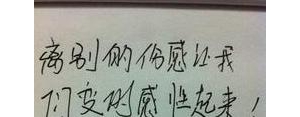 离别的伤感让我
们变的感性起来！